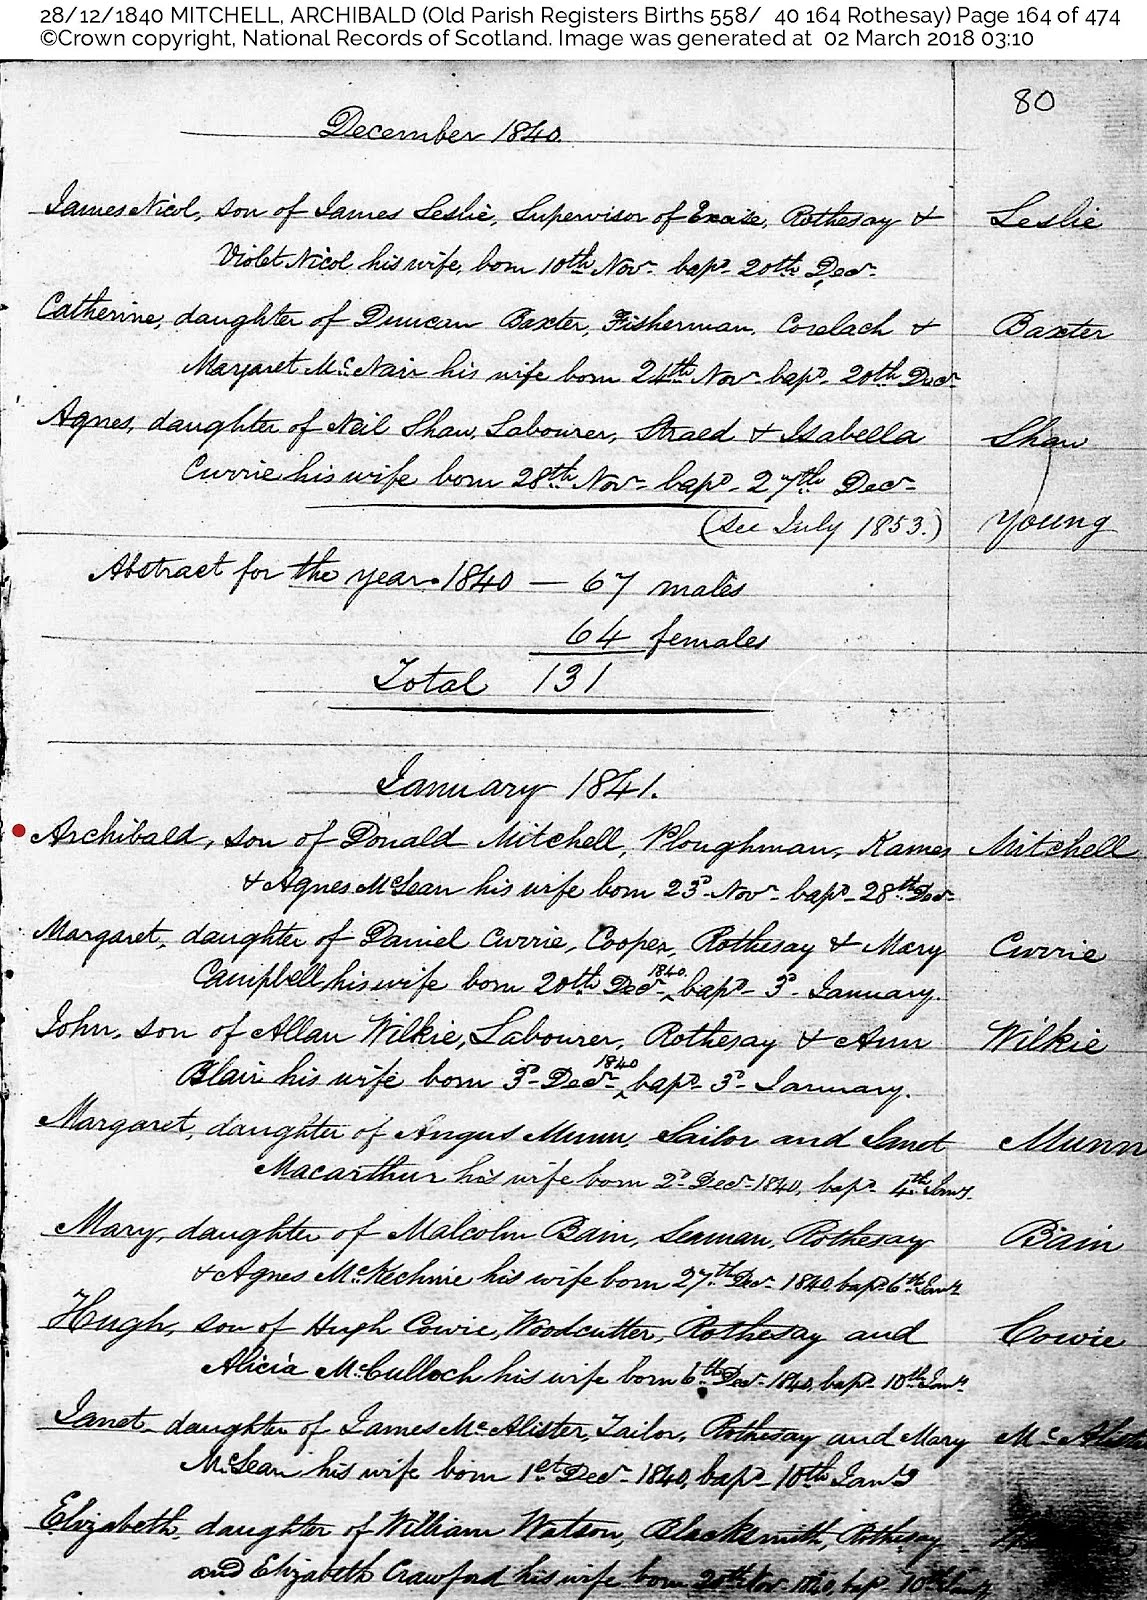 28/12/1840 MITCHELL, ARCHIBALD (Old Parish Registers Births 558/ 40 164 Rothesay) Page 164 of 474
©Crown copyright, National Records of Scotland. Image was generated at 02 March 2018 03:10
80
December 1840.
James Nicol, son of James Leslie, Supervisor of Excise, Rothesay & Leslie
Violet Nicol his wife, born 10th Novr bapd 20th Decr
Catherine, daughter of Duncan Baxter, Fisherman, Corelach & Baxter
Margaret McNair his wife born 24th Novr bapd 20th Decr
Agnes, daughter of Neil Shaw, Labourer, Straed & Isabella Shaw
Currie his wife born 28th Novr bapd 27th Decr
(See July 1853.) Young
Abstract for the year 1840 — 67 males
64 females
Total 131
January 1841.
Archibald, son of Donald Mitchell, Ploughman, Kames Mitchell
& Agnes McLean his wife born 23d Novr bapd 28th Decr
Margaret, daughter of Daniel Currie, Cooper, Rothesay & Mary Currie
Campbell his wife born 20th Decr 1840, bapd 3d January.
John, son of Allan Wilkie, Labourer, Rothesay & Ann Wilkie
Blair his wife born 3d Decr 1840 bapd 3d January.
Margaret, daughter of Angus Munn, Sailor and Janet Munn
Macarthur his wife born 2d Decr 1840, bapd 4th Jany.
Mary, daughter of Malcolm Bain, Seaman, Rothesay Bain
& Agnes McKechnie his wife born 27th Decr 1840, bapd 6th Jany
Hugh, son of Hugh Cowie, Woodcutter, Rothesay and Cowie
Alicia McCulloch his wife born 6th Decr 1840, bapd 10th Jany
Janet, daughter of James McAlister, Tailor, Rothesay and Mary McAlister
McLean his wife born 1st Decr 1840, bapd 10th Jany
Elizabeth, daughter of William Watson, Blacksmith, Rothesay
and Elizabeth Crawford his wife born 20th Novr 1840, bapd 10th Jany